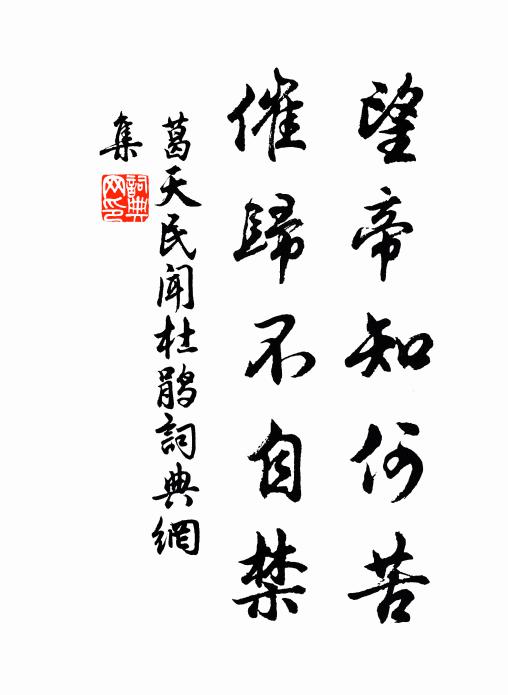 望帝知何苦
催歸不自禁
葛天民聞杜鵑詞典網
集
詞典
网印